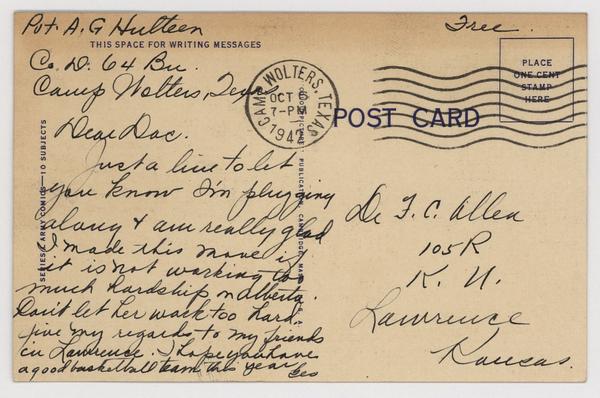 Pvt A. G Hulteen
Free.
THIS SPACE FOR WRITING MESSAGES
Co. D. 64 Bn.
Camp Wolters, Texas
CAMP WOLTERS, TEXAS
OCT 6
7-PM
1942
PLACE
ONE CENT
STAMP
HERE
POST CARD
Dear Doc.
Just a line to let
you know I'm plugging
along & am really glad
I made this move if
it is not working too
much hardship on Alberta.
Don't let her work too hard
give my regards to my friends
in Lawrence. I hope you have
a good basketball team this year
Dr F. C. Allen
105 R
K. U.
Lawrence
Kansas.
SERIES ARMY COMICS—10 SUBJECTS